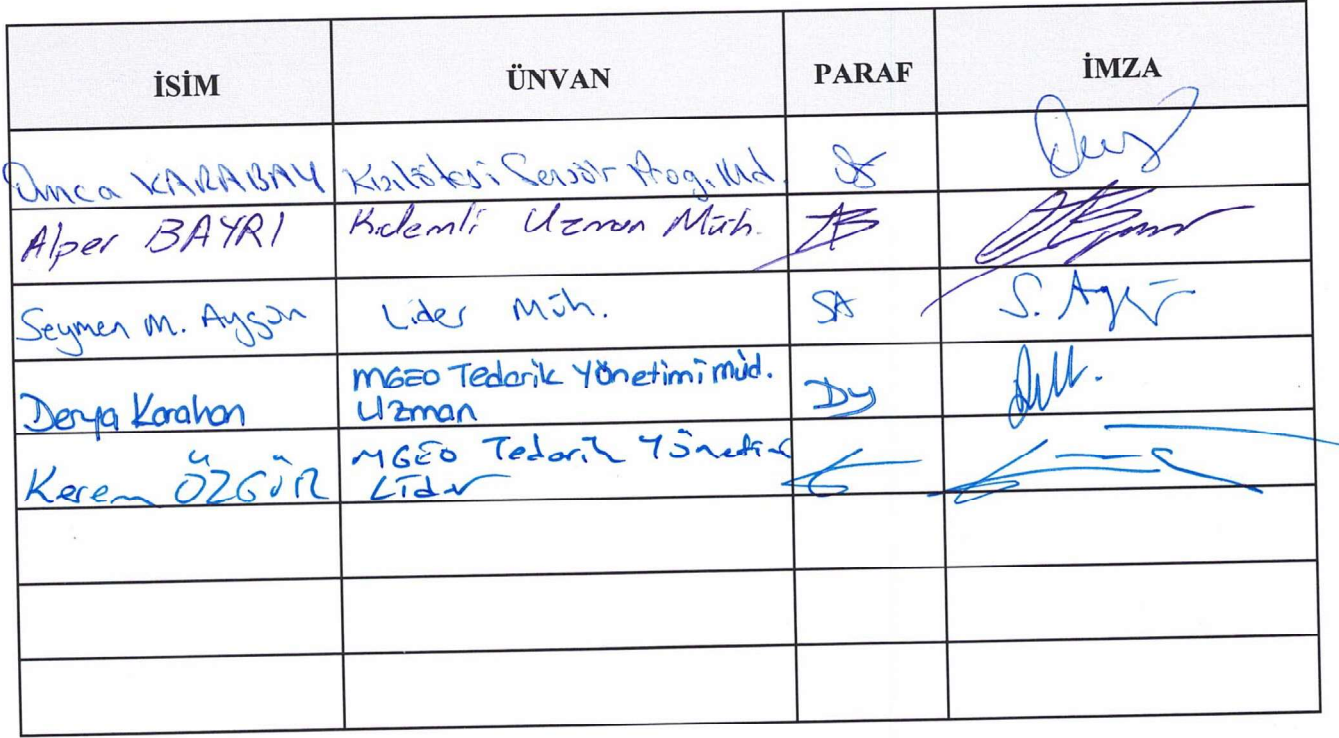 İSİM ÜNVAN PARAF İMZA
KARABAY Kızılötesi Sensör Prog. Md.
Alper BAYRI Kıdemli Uzman Müh. AB
Seymen M. Aygün Lider Müh. SA S. Aygün
Derya Karahan MGEO Tedarik Yönetimi müd. Dy
Uzman
Kerem ÖZGÜR MGEO Tedarik Yönetim
Lider